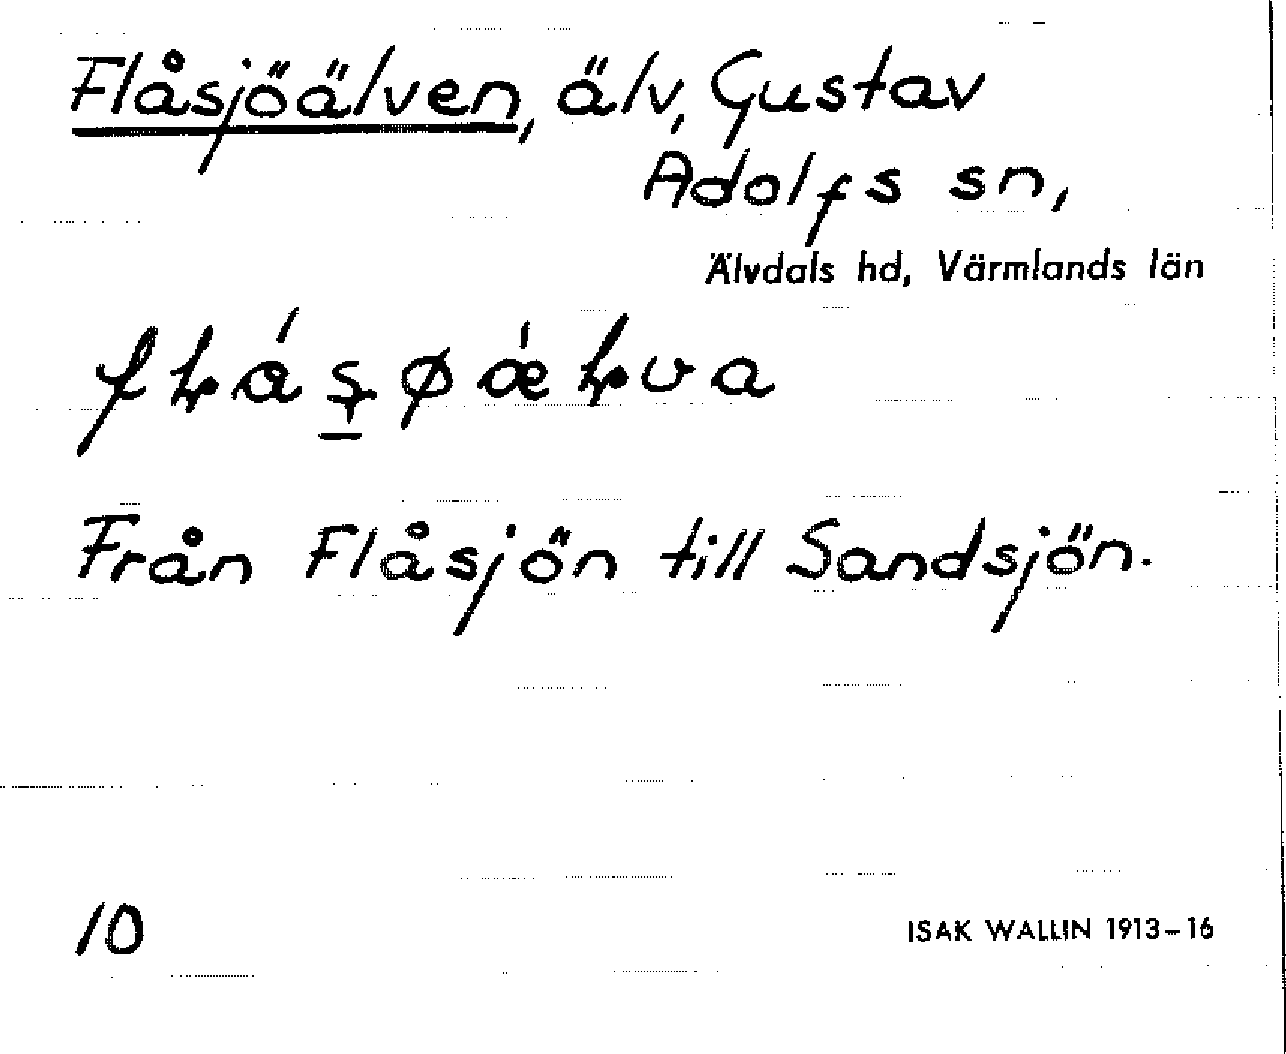 Flåsjöälven, älv, Gustav
Adolfs sn,
Älvdals hd, Värmlands län
Från Flåsjön till Sandsjön.
10
ISAK WALLIN 1913-16